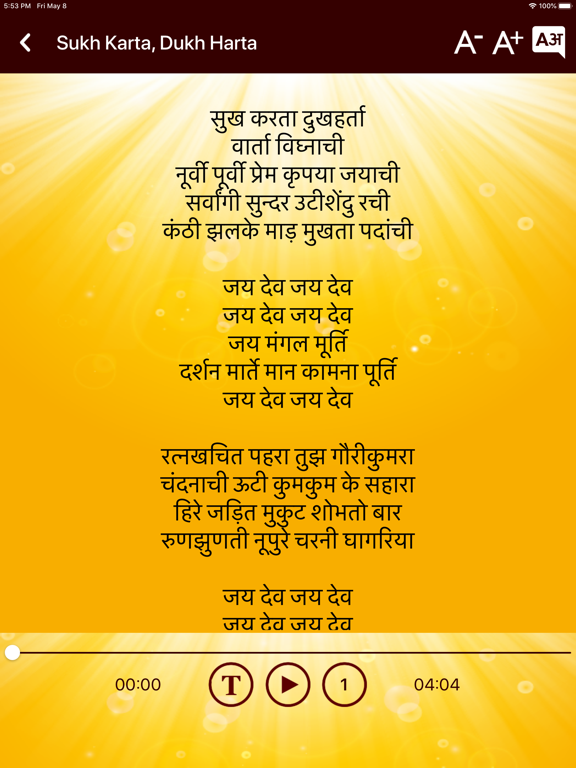 5:53 PM Fri May 8 100%
Sukh Karta, Dukh Harta A- A+ Aअ
सुख करता दुखहर्ता
वार्ता विघ्नाची
नूर्वी पूर्वी प्रेम कृपया जयाची
सर्वांगी सुन्दर उटीशेंदु रची
कंठी झलके माड़ मुखता पदांची
जय देव जय देव
जय देव जय देव
जय मंगल मूर्ति
दर्शन मार्ते मान कामना पूर्ति
जय देव जय देव
रत्नखचित पहरा तुझ गौरीकुमरा
चंदनाची ऊटी कुमकुम के सहारा
हिरे जड़ित मुकुट शोभतो बार
रुणझुणती नूपुरे चरनी घागरिया
जय देव जय देव
जय देव जय देव
00:00 T 1 04:04